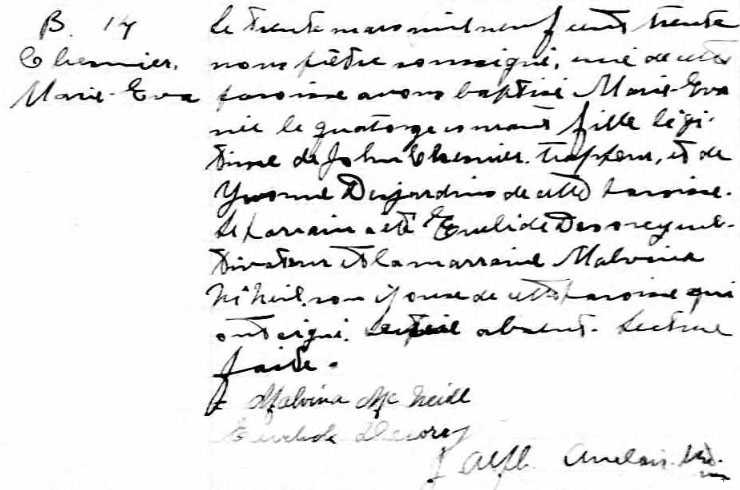 B. 14
Chenier,
Marie-Eva
Le trente mars mil neuf cent trente
nous prêtre soussigné, curé de cette
paroisse avons baptisé Marie-Eva
née le quatorze courant fille légi-
time de John Chenier, trappeur, et de
Yvonne Desjardins de cette paroisse.
Le parrain a été Euclide cul-
tivateur et la marraine Malvina
McNeil, son épouse de cette paroisse qui
ont signé. absent. Lecture
faite.
Malvina Mc Neill
Euclide